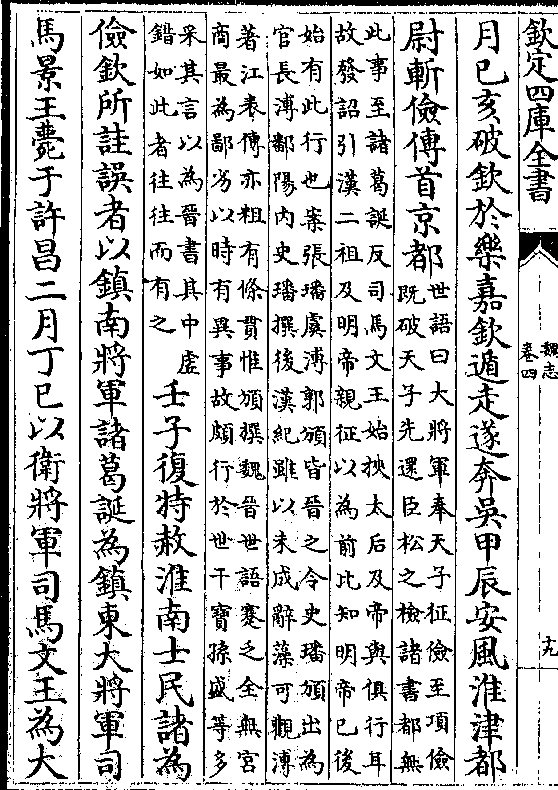 欽定四庫全書
魏志
卷四
十九
月己亥破欽於樂嘉欽遁走遂奔吳甲辰安風淮津都
尉斬儉傳首京都
世語曰大將軍奉天子征儉至項儉
既破天子先還臣松之檢諸書都無
此事至諸葛誕反司馬文王始挾太后及帝與俱行耳
故發詔引漢二祖及明帝親征以為前比知明帝已後
始有此行也案張璠虞溥郭頒皆晉之令史璠頒出為
官長溥鄱陽內史璠撰後漢紀雖以未成辭藻可觀溥
著江表傳亦粗有條貫惟頒撰魏晉世語蹇乏全無宮
商最為鄙劣以時有異事故頗行於世干寶孫盛等多
采其言以為晉書其中虛
錯如此者往往而有之
壬子復特赦淮南士民諸為
儉欽所詿誤者以鎮南將軍諸葛誕為鎮東大將軍司
馬景王薨于許昌二月丁巳以衛將軍司馬文王為大